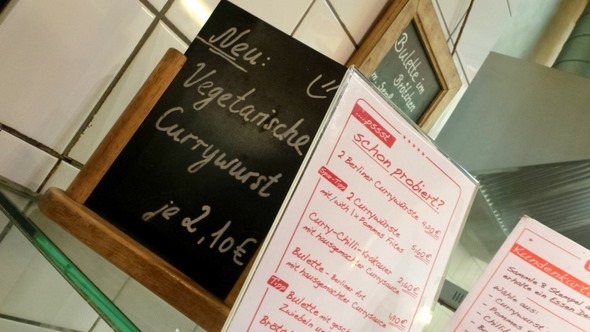 Neu:
Vegetarische
Currywurst
je 2,10€
Bulette im
Brötchen
m. Senf
....pssst
schon probiert?
2 Berliner Currywürste
2 Currywürste
mit/with 1x Pommes Frites
Curry-Chili-Krakauer
mit hausgemachter Currysauce
Bulette - Berliner Art
mit hausgemachter Currysauce
Tipp
Bulette mit
Zwiebeln
Kundenkarte
Sammle 8 Stempel
erhalte ein Essen
Wähle aus:
- Pommes
- Currywurst
- Chili